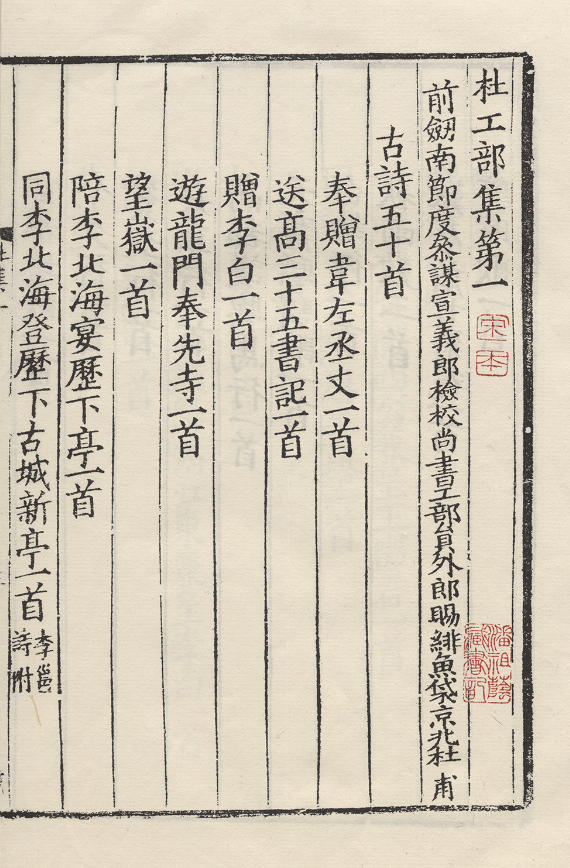 杜工部集第一
宋本
前劒南節度叅謀宣義郎檢校尚書工部員外郎賜緋魚袋京兆杜甫
潘祖蔭藏書記
古詩五十首
奉贈韋左丞丈一首
送高三十五書記一首
贈李白一首
遊龍門奉先寺一首
望嶽一首
陪李北海宴歷下亭一首
同李北海登歷下古城新亭一首
李邕
詩附